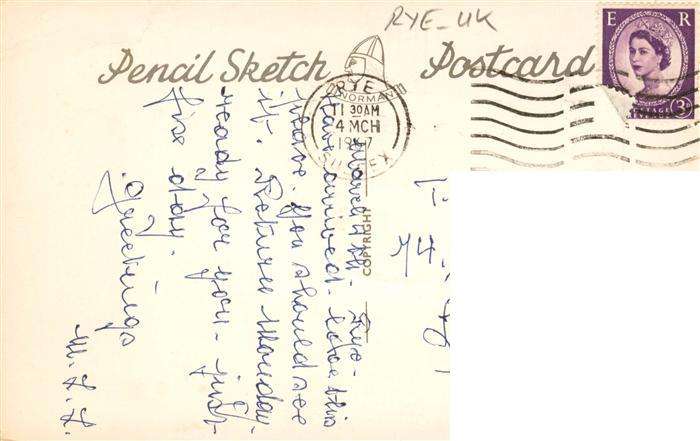 RYE-UK
Pencil Sketch Postcard
E R
POSTAGE
3D
RYE
NORMAN
11 30AM
4 MCH
1967
SUSSEX
COPYRIGHT
March 4th Rye-
Have arrived- love this
place. You should see
it. Return Monday-
ready for you - just
fire away.
Greetings
M.L.L.
74.